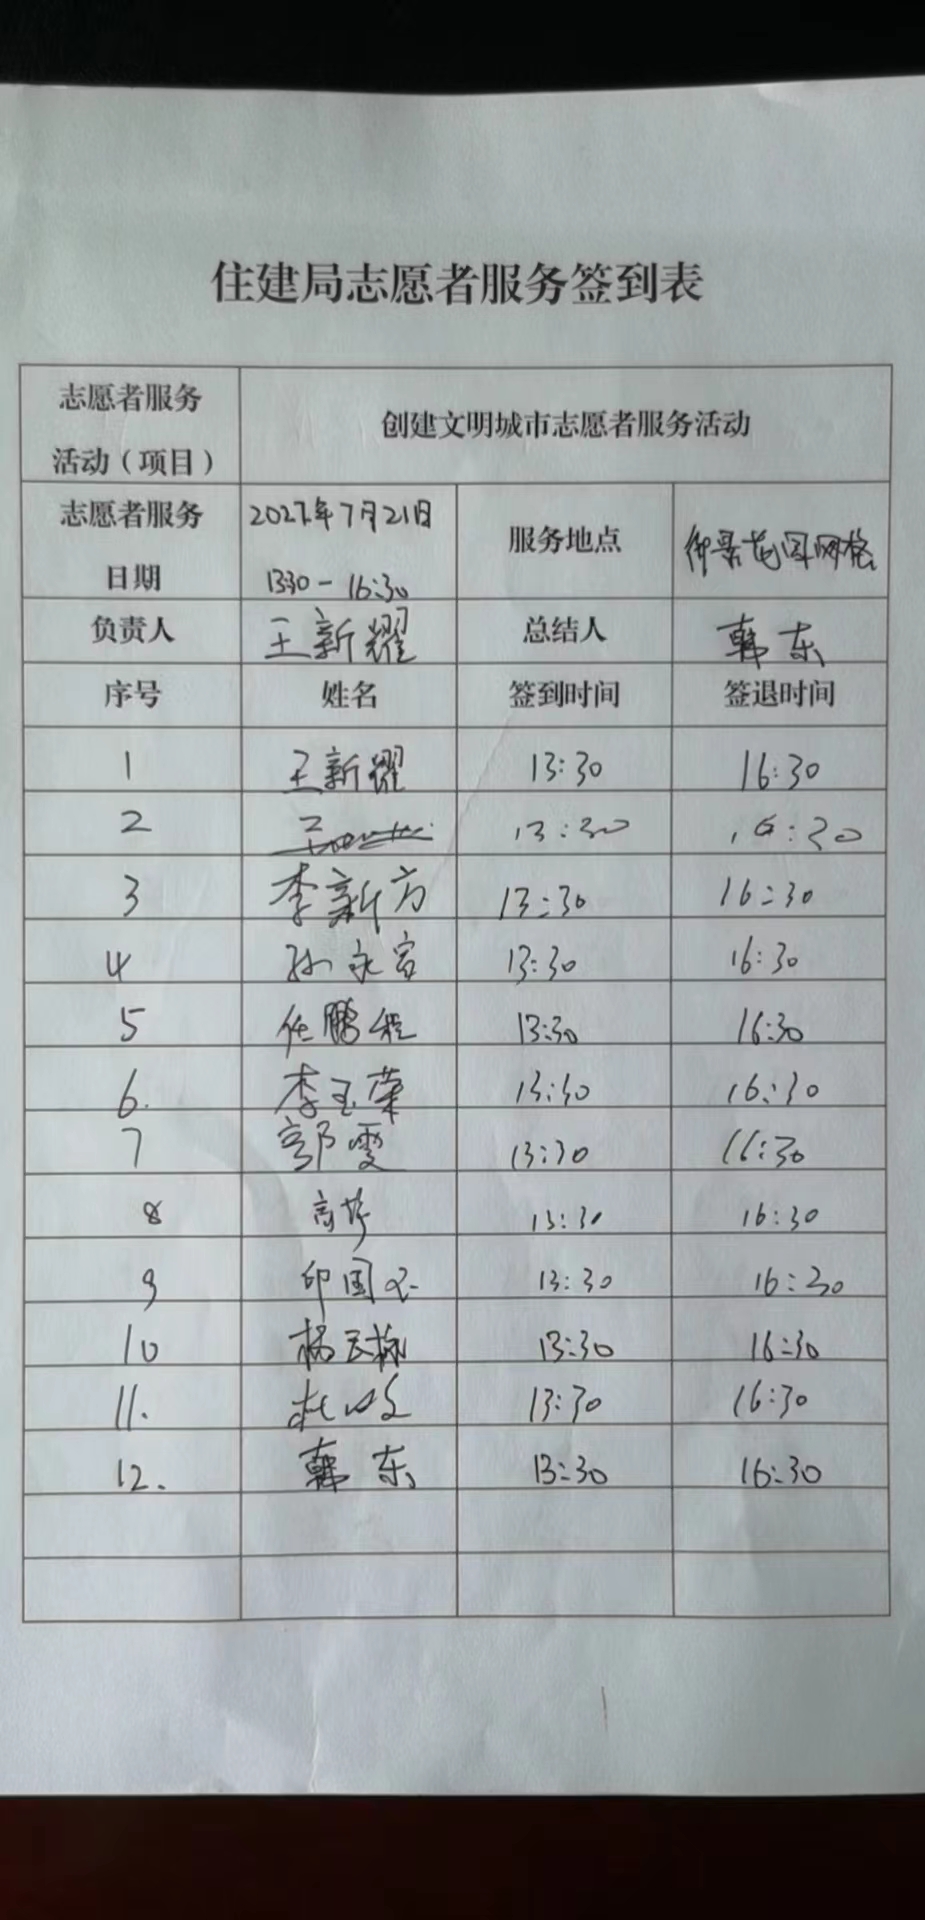 住建局志愿者服务签到表
志愿者服务
活动（项目）
创建文明城市志愿者服务活动
志愿者服务
日期
7月21日
1330-16:30
服务地点
御景花园网格
负责人
王新耀
总结人
韩东
序号 姓名 签到时间 签退时间
1 王新耀 13:30 16:30
2 13:30 16:30
3 李新方 13:30 16:30
4 孙永富 13:30 16:30
5 任鹏程 13:30 16:30
6. 李玉荣 13:30 16:30
7 郭雯 13:30 16:30
8 13:30 16:30
9 印国 13:30 16:30
10 杨 栋 13:30 16:30
11. 杜 13:30 16:30
12. 韩东 13:30 16:30